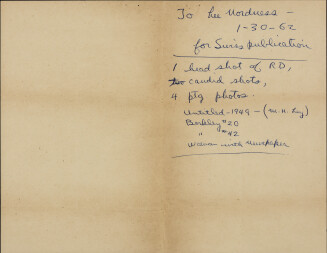 To Lee Nordness -
1-30-62
for Swiss publication
1 head shot of RD,
two candid shots,
4 ptg photos.
Untitled - 1949 - (M. H.
Berkeley #20
" #42
Woman with Newspaper